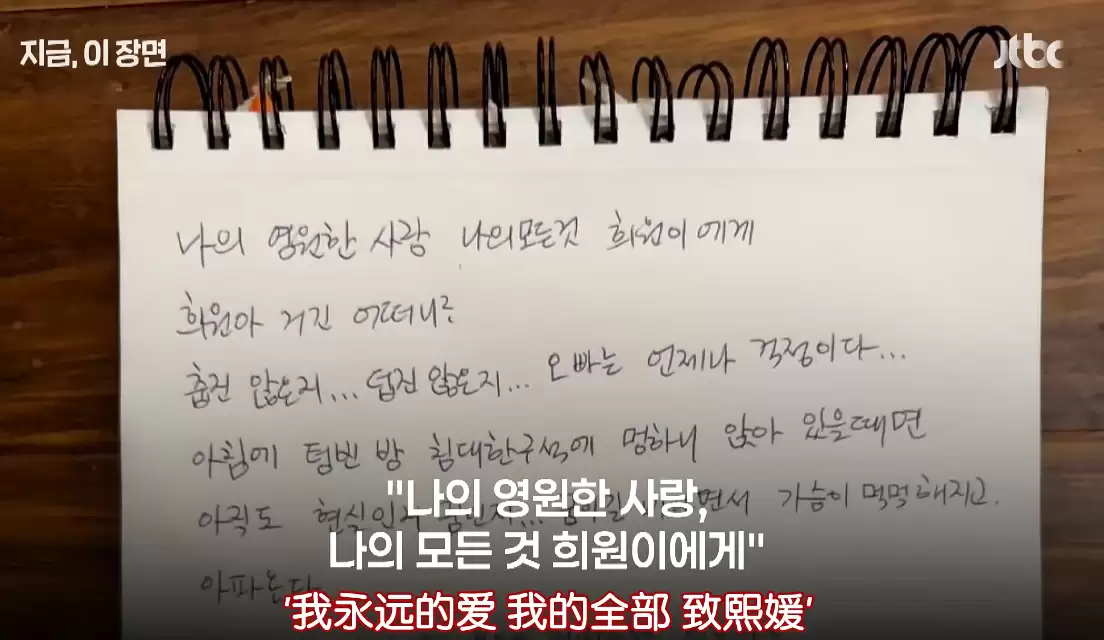 지금, 이 장면
jtbc
나의 영원한 사랑 나의모든것 희원이에게
희원아 거긴 어떠니?
춥진 않은지... 덥진 않은지... 오빠는 언제나 걱정이다...
아침에 텅빈 방 침대한구석에 멍하니 앉아 있을때면
아직도 현실인지 면서 가슴이 먹먹해지고.
아파온다
"나의 영원한 사랑,
나의 모든 것 희원이에게"
'我永远的爱 我的全部 致熙媛'